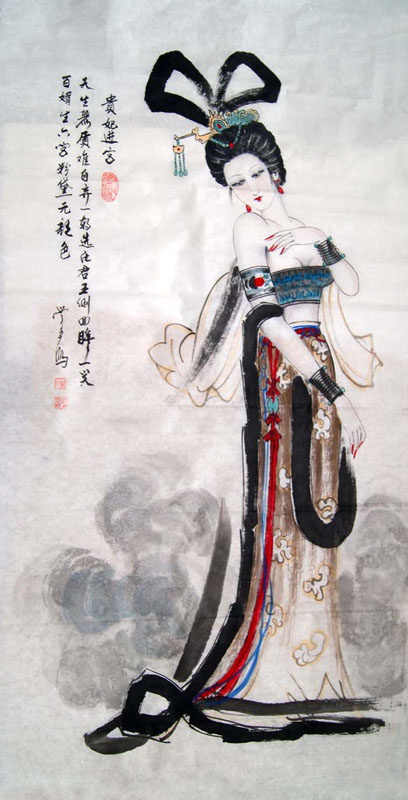 貴妃進宫
天生麗質难自弃一朝选在君王側回眸一笑
百媚生六宫粉黛无颜色